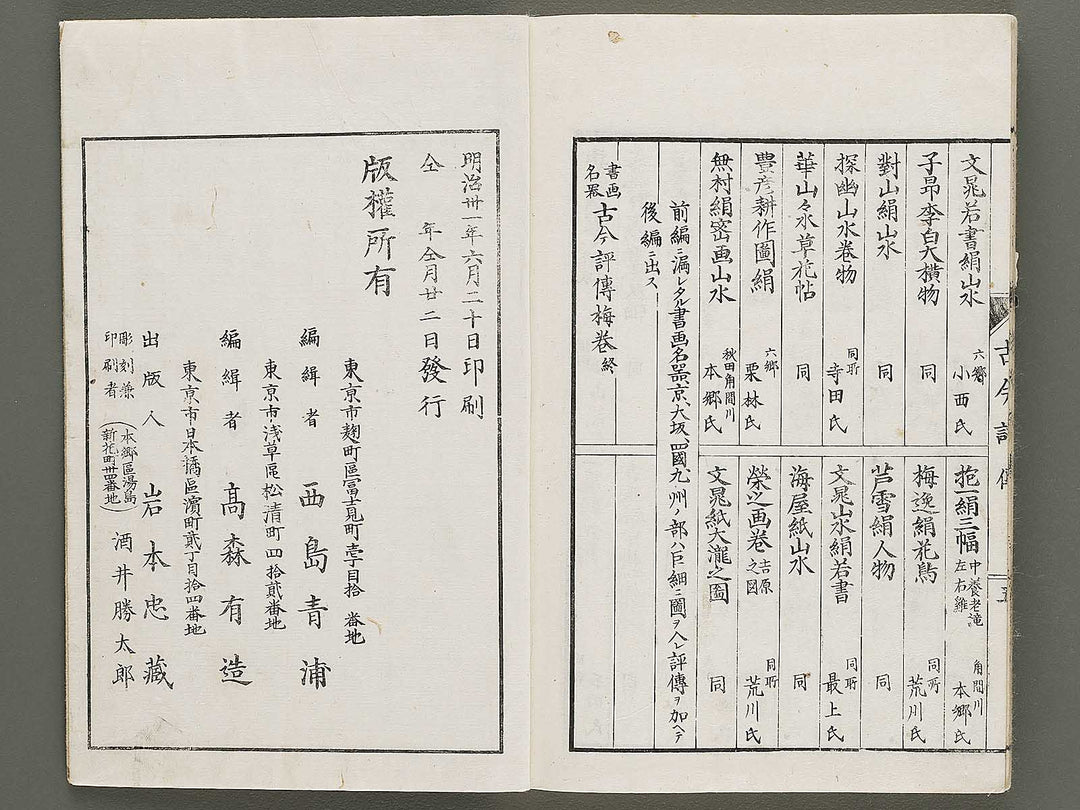 文晁若書絹山水
六郷 小西氏
子昂李白大橫物
同
對山絹山水
同
探幽山水卷物
同所 寺田氏
華山々水草花帖
同
豊彦耕作圖絹
六郷 栗林氏
無村絹密画山水
秋田角間川 本郷氏
抱一絹三幅 中養老滝 左右雞
角間川 本郷氏
梅逸絹花鳥
同所 荒川氏
芦雪絹人物
同
文晁山水絹若書
同所 最上氏
海屋紙山水
同
榮之画卷 吉原之図
同所 荒川氏
文晁紙大瀧之圖
同
前編ニ漏レタル書画名器京、大坂、四國、九州ノ部ハ巨細ニ圖ヲ入レ評傳ヲ加ヘテ
後編ニ出ス
書画名器 古今評傳梅卷終
古今評傳
五
明治卅一年六月二十日印刷
仝 年仝月廿二日發行
版權所有
東京市麹町區富士見町壱丁目拾番地
編緝者 西島青浦
東京市浅草區松清町四拾貳番地
編緝者 高森有造
東京市日本橋區濱町貳丁目拾四番地
出版人 岩本忠藏
彫刻兼印刷者 (本郷區湯島新花町卅四番地) 酒井勝太郎